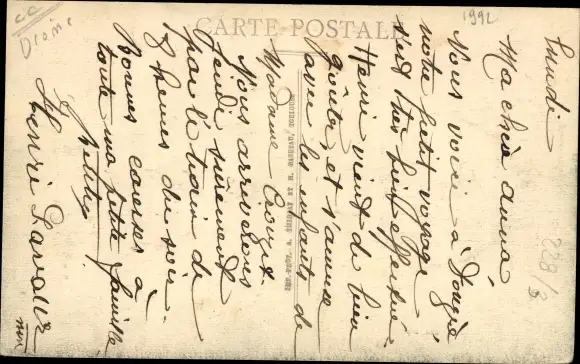 CARTE POSTALE
1992
CC
Drome
Lundi
Ma chère anna
Nous voici à
notre petit voyage
s'est très bien effectué
Henri vient de bien
goûter et s'amuse
avec les enfants de
Madame
Nous arriverons
Jeudi sûrement
par le train de
8 heures du soir.
Bonnes caresses à
toute ma petite famille
Henri
228/3
IMP.-PHOT. A. ET H. TOULOUSE